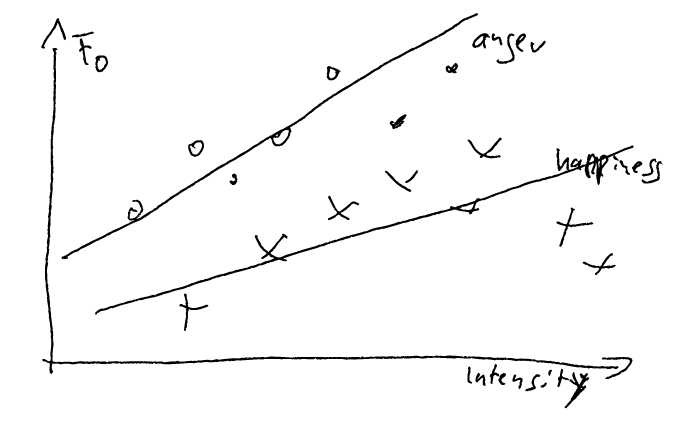 F0
anger
happiness
Intensity